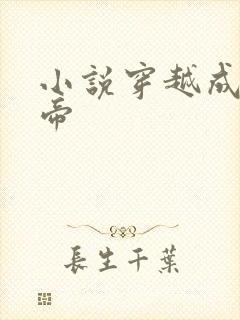 小說穿越成
帝
長生千葉